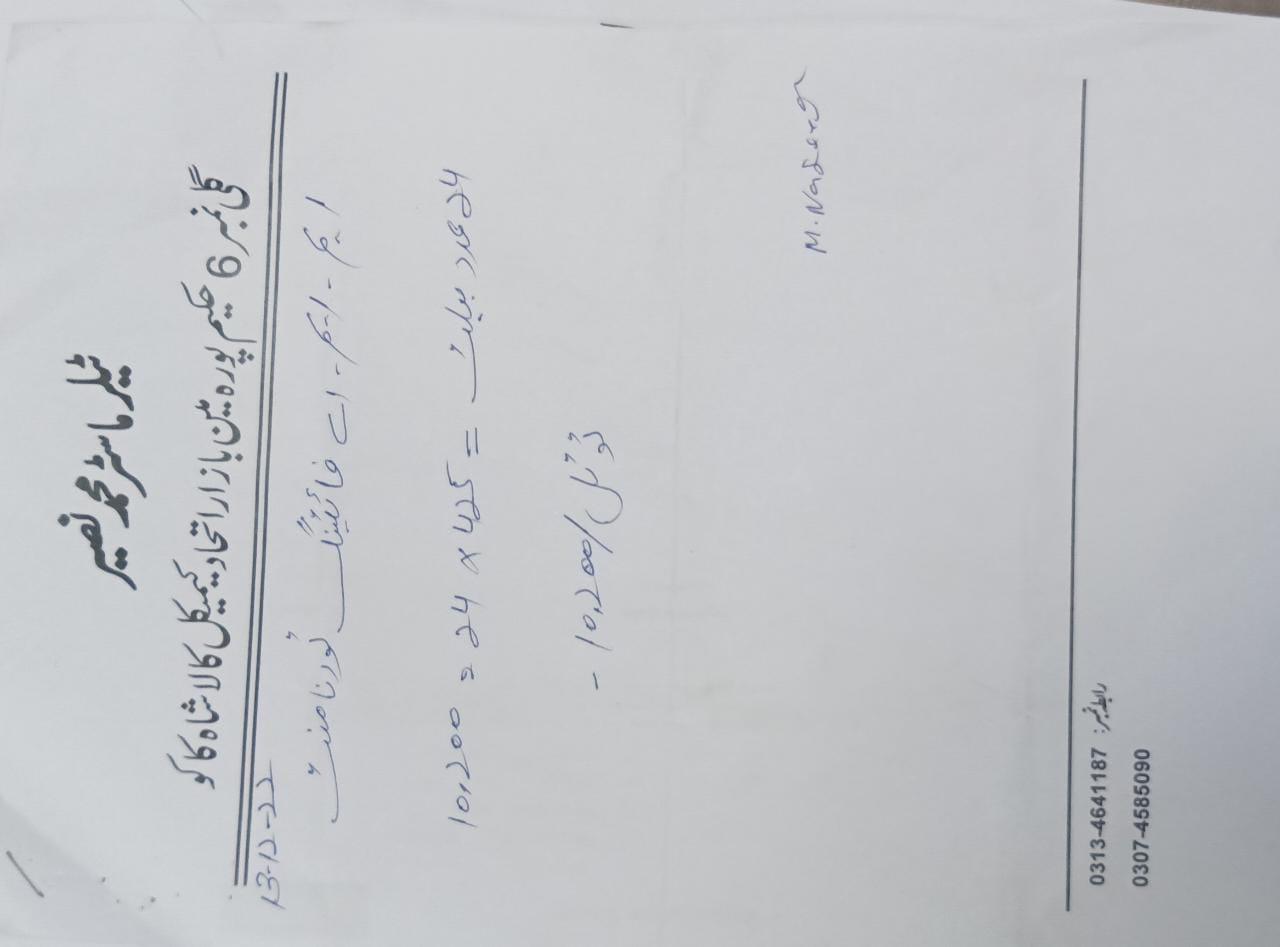 ٹیلر ماسٹر محمد نصیر
گلی نمبر 6 حکیم پورہ مین بازار اتحاد کیمیکل کالا شاہ کاکو
13-12-22
ایم - ایم - اے فائٹینگ ٹورنامنٹ
24 عدد = 24 x 425 = 10,200
ٹوٹل /10,200 -
M. Naseer
رابطہ نمبر: 0313-4641187
0307-4585090